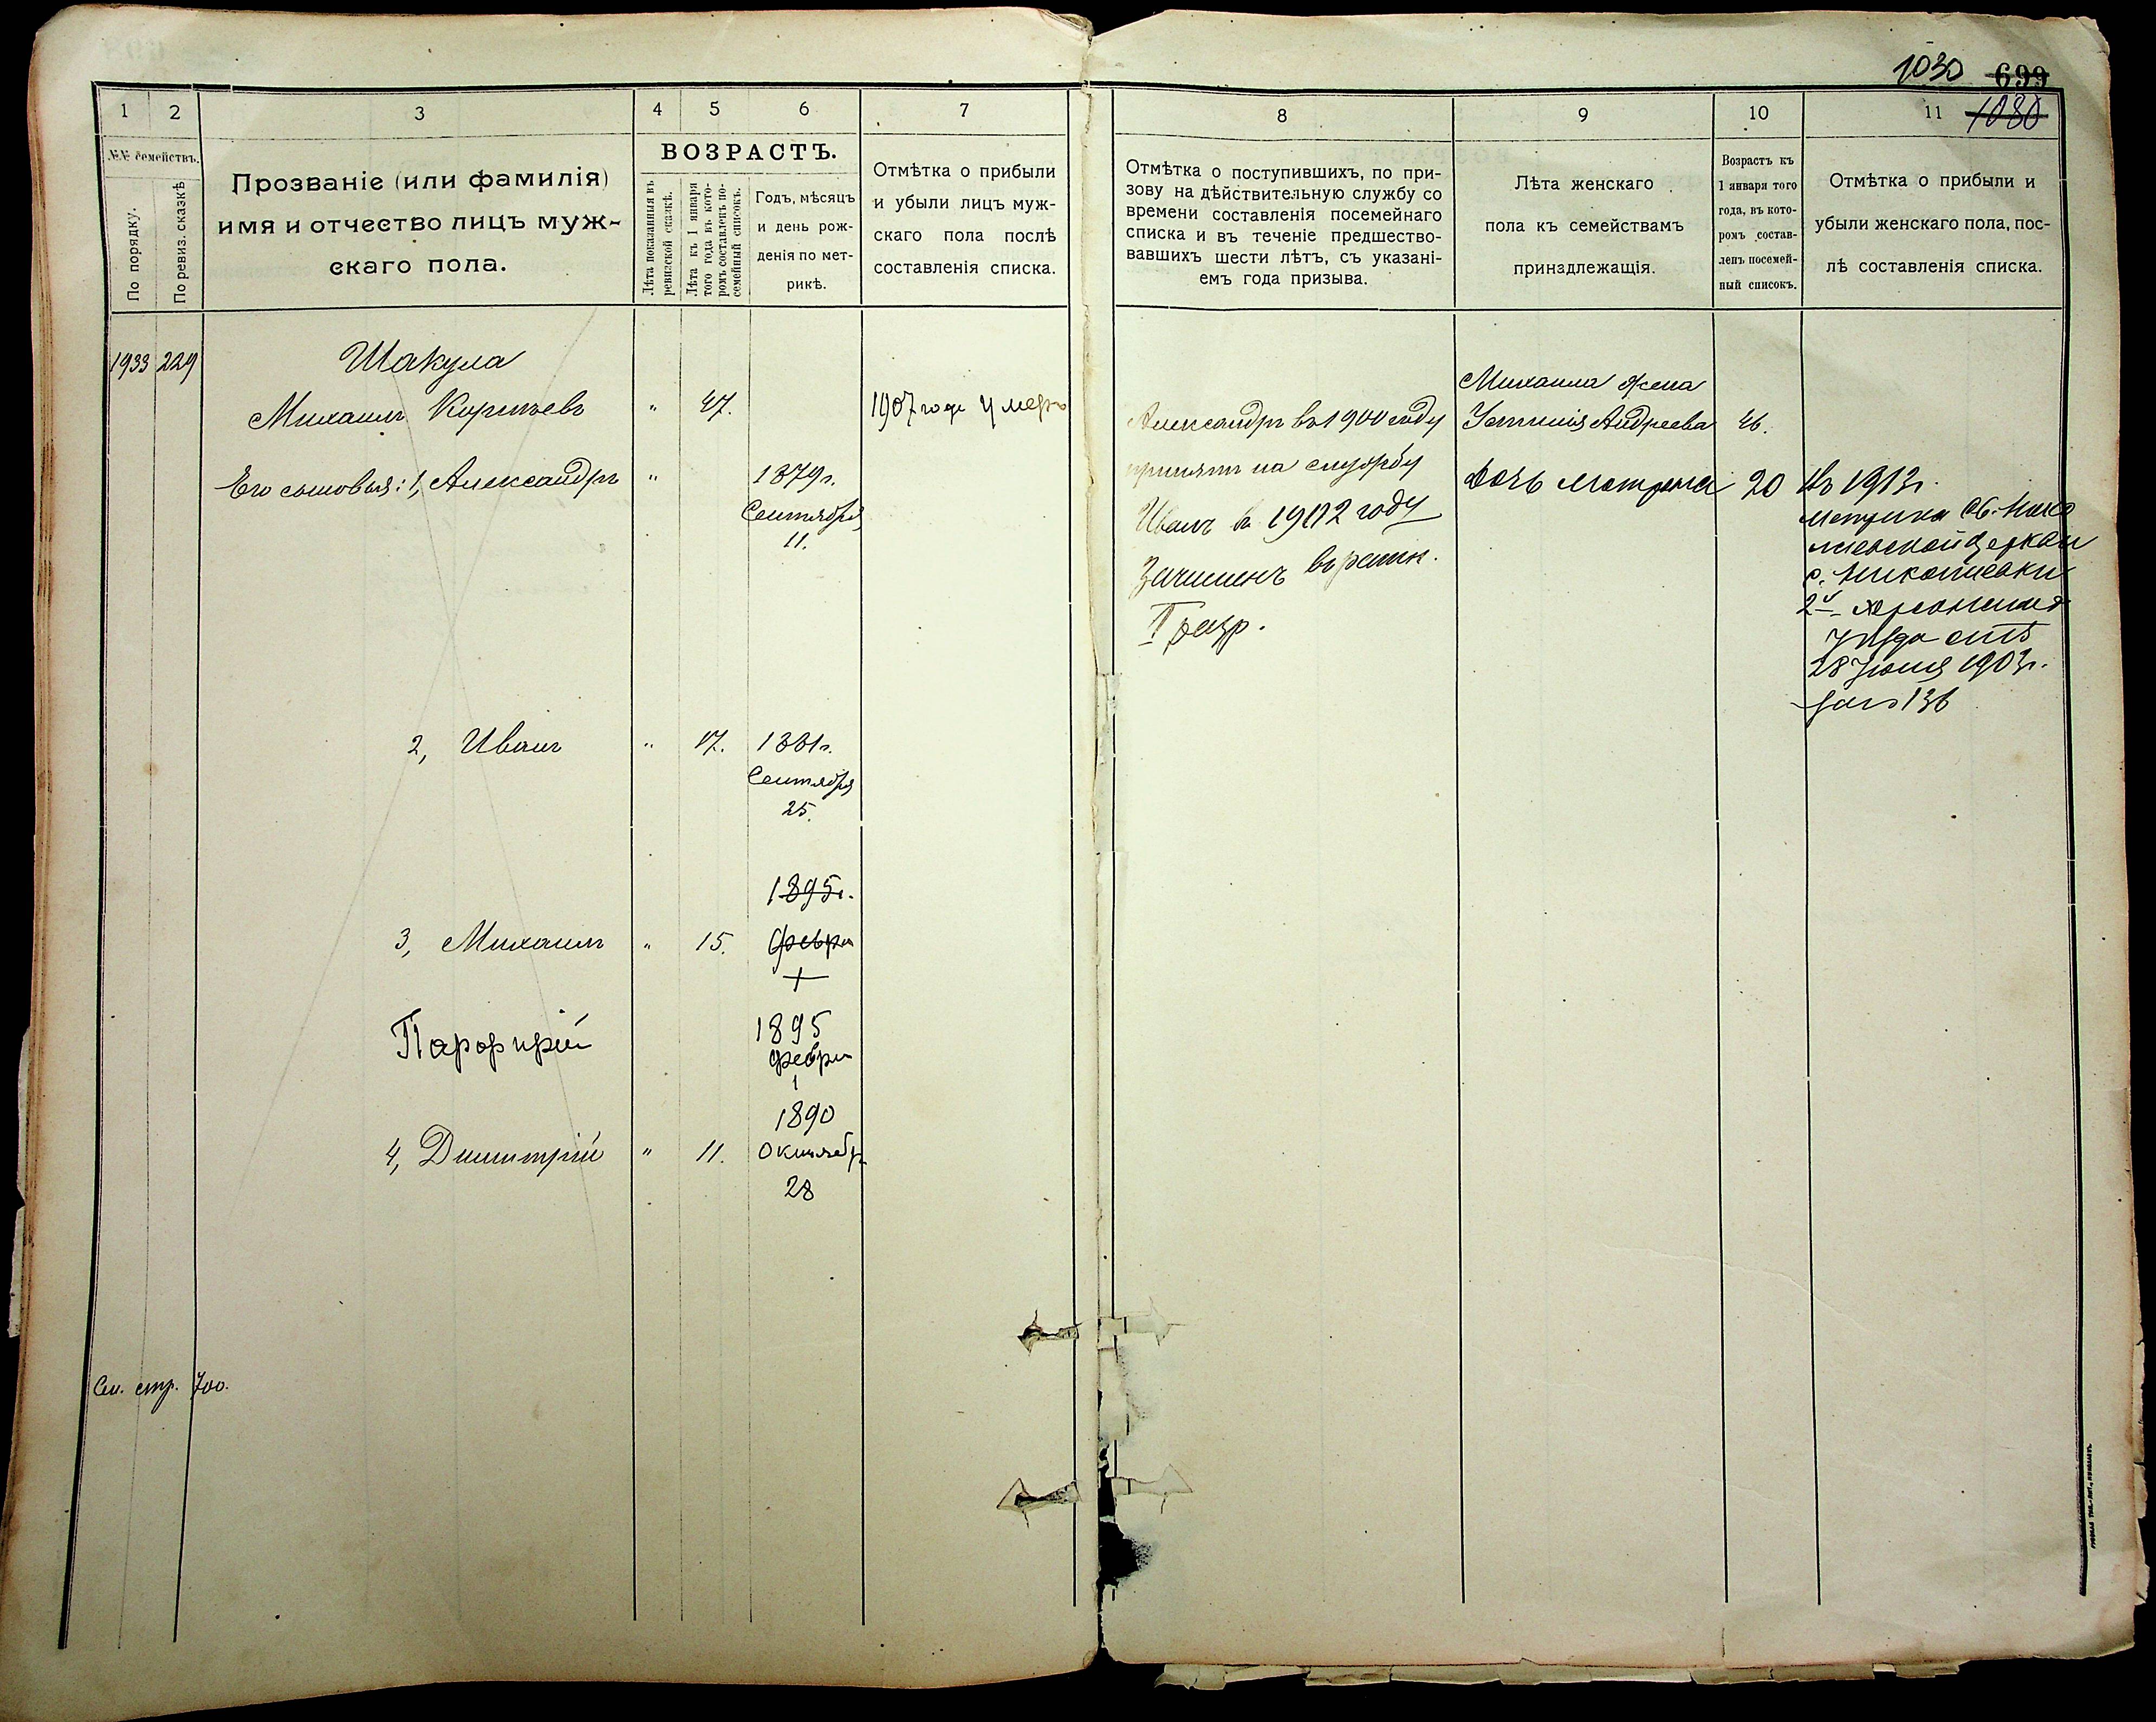 1030 699
1 2 3 4 5 6 7 8 9 10 11 1030
№№ семействъ.
По порядку.
По ревиз. сказкѣ
Прозваніе (или фамилія)
имя и отчество лицъ муж-
скаго пола.
ВОЗРАСТЪ.
Лѣта показанныя въ
ревизской сказкѣ.
Лѣта къ 1 января
того года въ кото-
ромъ составленъ по-
семейный списокъ.
Годъ, мѣсяцъ
и день рож-
денія по мет-
рикѣ.
Отмѣтка о прибыли
и убыли лицъ муж-
скаго пола послѣ
составленія списка.
Отмѣтка о поступившихъ, по при-
зову на дѣйствительную службу со
времени составленія посемейнаго
списка и въ теченіе предшество-
вавшихъ шести лѣтъ, съ указані-
емъ года призыва.
Лѣта женскаго
пола къ семействамъ
принадлежащія.
Возрастъ къ
1 января того
года, въ кото-
ромъ состав-
ленъ посемей-
ный списокъ.
Отмѣтка о прибыли и
убыли женскаго пола, пос-
лѣ составленія списка.
1933 229 Шакула
Михаилъ " 47. 1907 года умеръ
Его сыновья: 1, Александръ " 1879г.
Сентября
11.
2, Иванъ " 17. 1881г.
Сентября
25.
1895г.
3, Михаилъ " 15. февр
1895
февр
1
1890
4, Димитрій " 11. Октябр
28
См. стр. 700.
Александръ въ 1900 году
принятъ на службу
Иванъ въ 1902 году
Зачисленъ въ ратн.
разр.
Михаила жена
Андреева 46.
Дочь Матрона 20
Въ 1913г.
Метрика Св. Нико
лаевской церкви
с. Николаевки
2й Херсонскаго
уѣзда отъ
28 Іюня 1903г.
за № 136